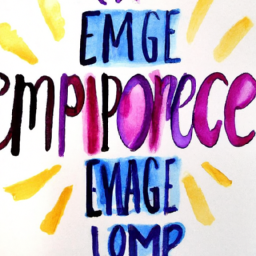 EMGE
empiporece
EWAGE
LOMP